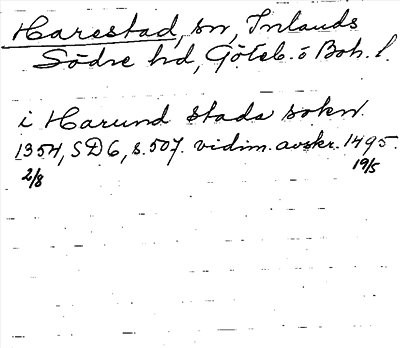 Harestad, sn, Inlands
Södre hd, Göteb. o Boh. l.
i Harund stads sokn.
1354, SD 6, s. 507. vidim. avskr. 1495.
2/8 19/5